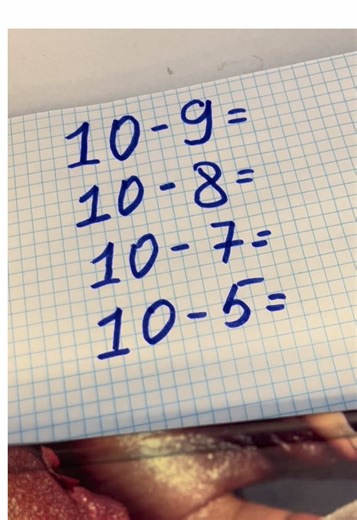 10-9=
10-8=
10-7=
10-5=